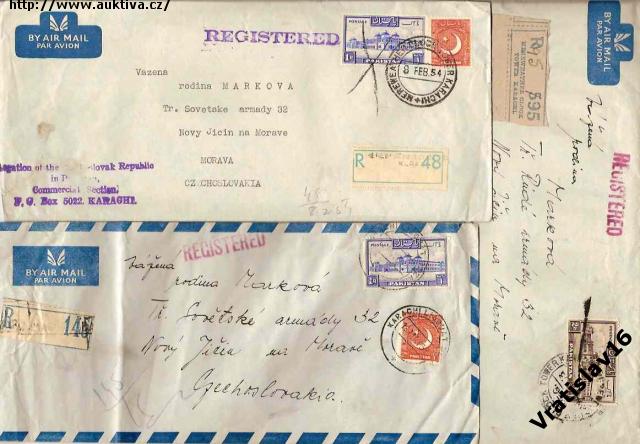 http://www.auktiva.cz/
BY AIR MAIL
PAR AVION
REGISTERED
POSTAGE
PAKISTAN
8 FEB. 54
KARACHI
Vazena
rodina MARKOVA
Tr. Sovetske armady 32
Novy Jicin na Morave
MORAVA
CZECHOSLOVAKIA
R
48
Legation of the
slovak Republic
in
Commercial Section,
P. O. Box 5022. KARACHI.
BY AIR MAIL
PAR AVION
REGISTERED
R
14
POSTAGE
PAKISTAN
KARACHI
Vážená
rodina Marková
Tř. Sovětské armády 32
Nový Jičín na Moravě
Czechoslovakia
BY AIR MAIL
PAR AVION
595
MEREWEATHER CLOCK
TOWER KARACHI.
REGISTERED
Vážená
rodina
Markova
Tř. Rudé armády 32
Nový Jičín na Moravě
Vratislav16